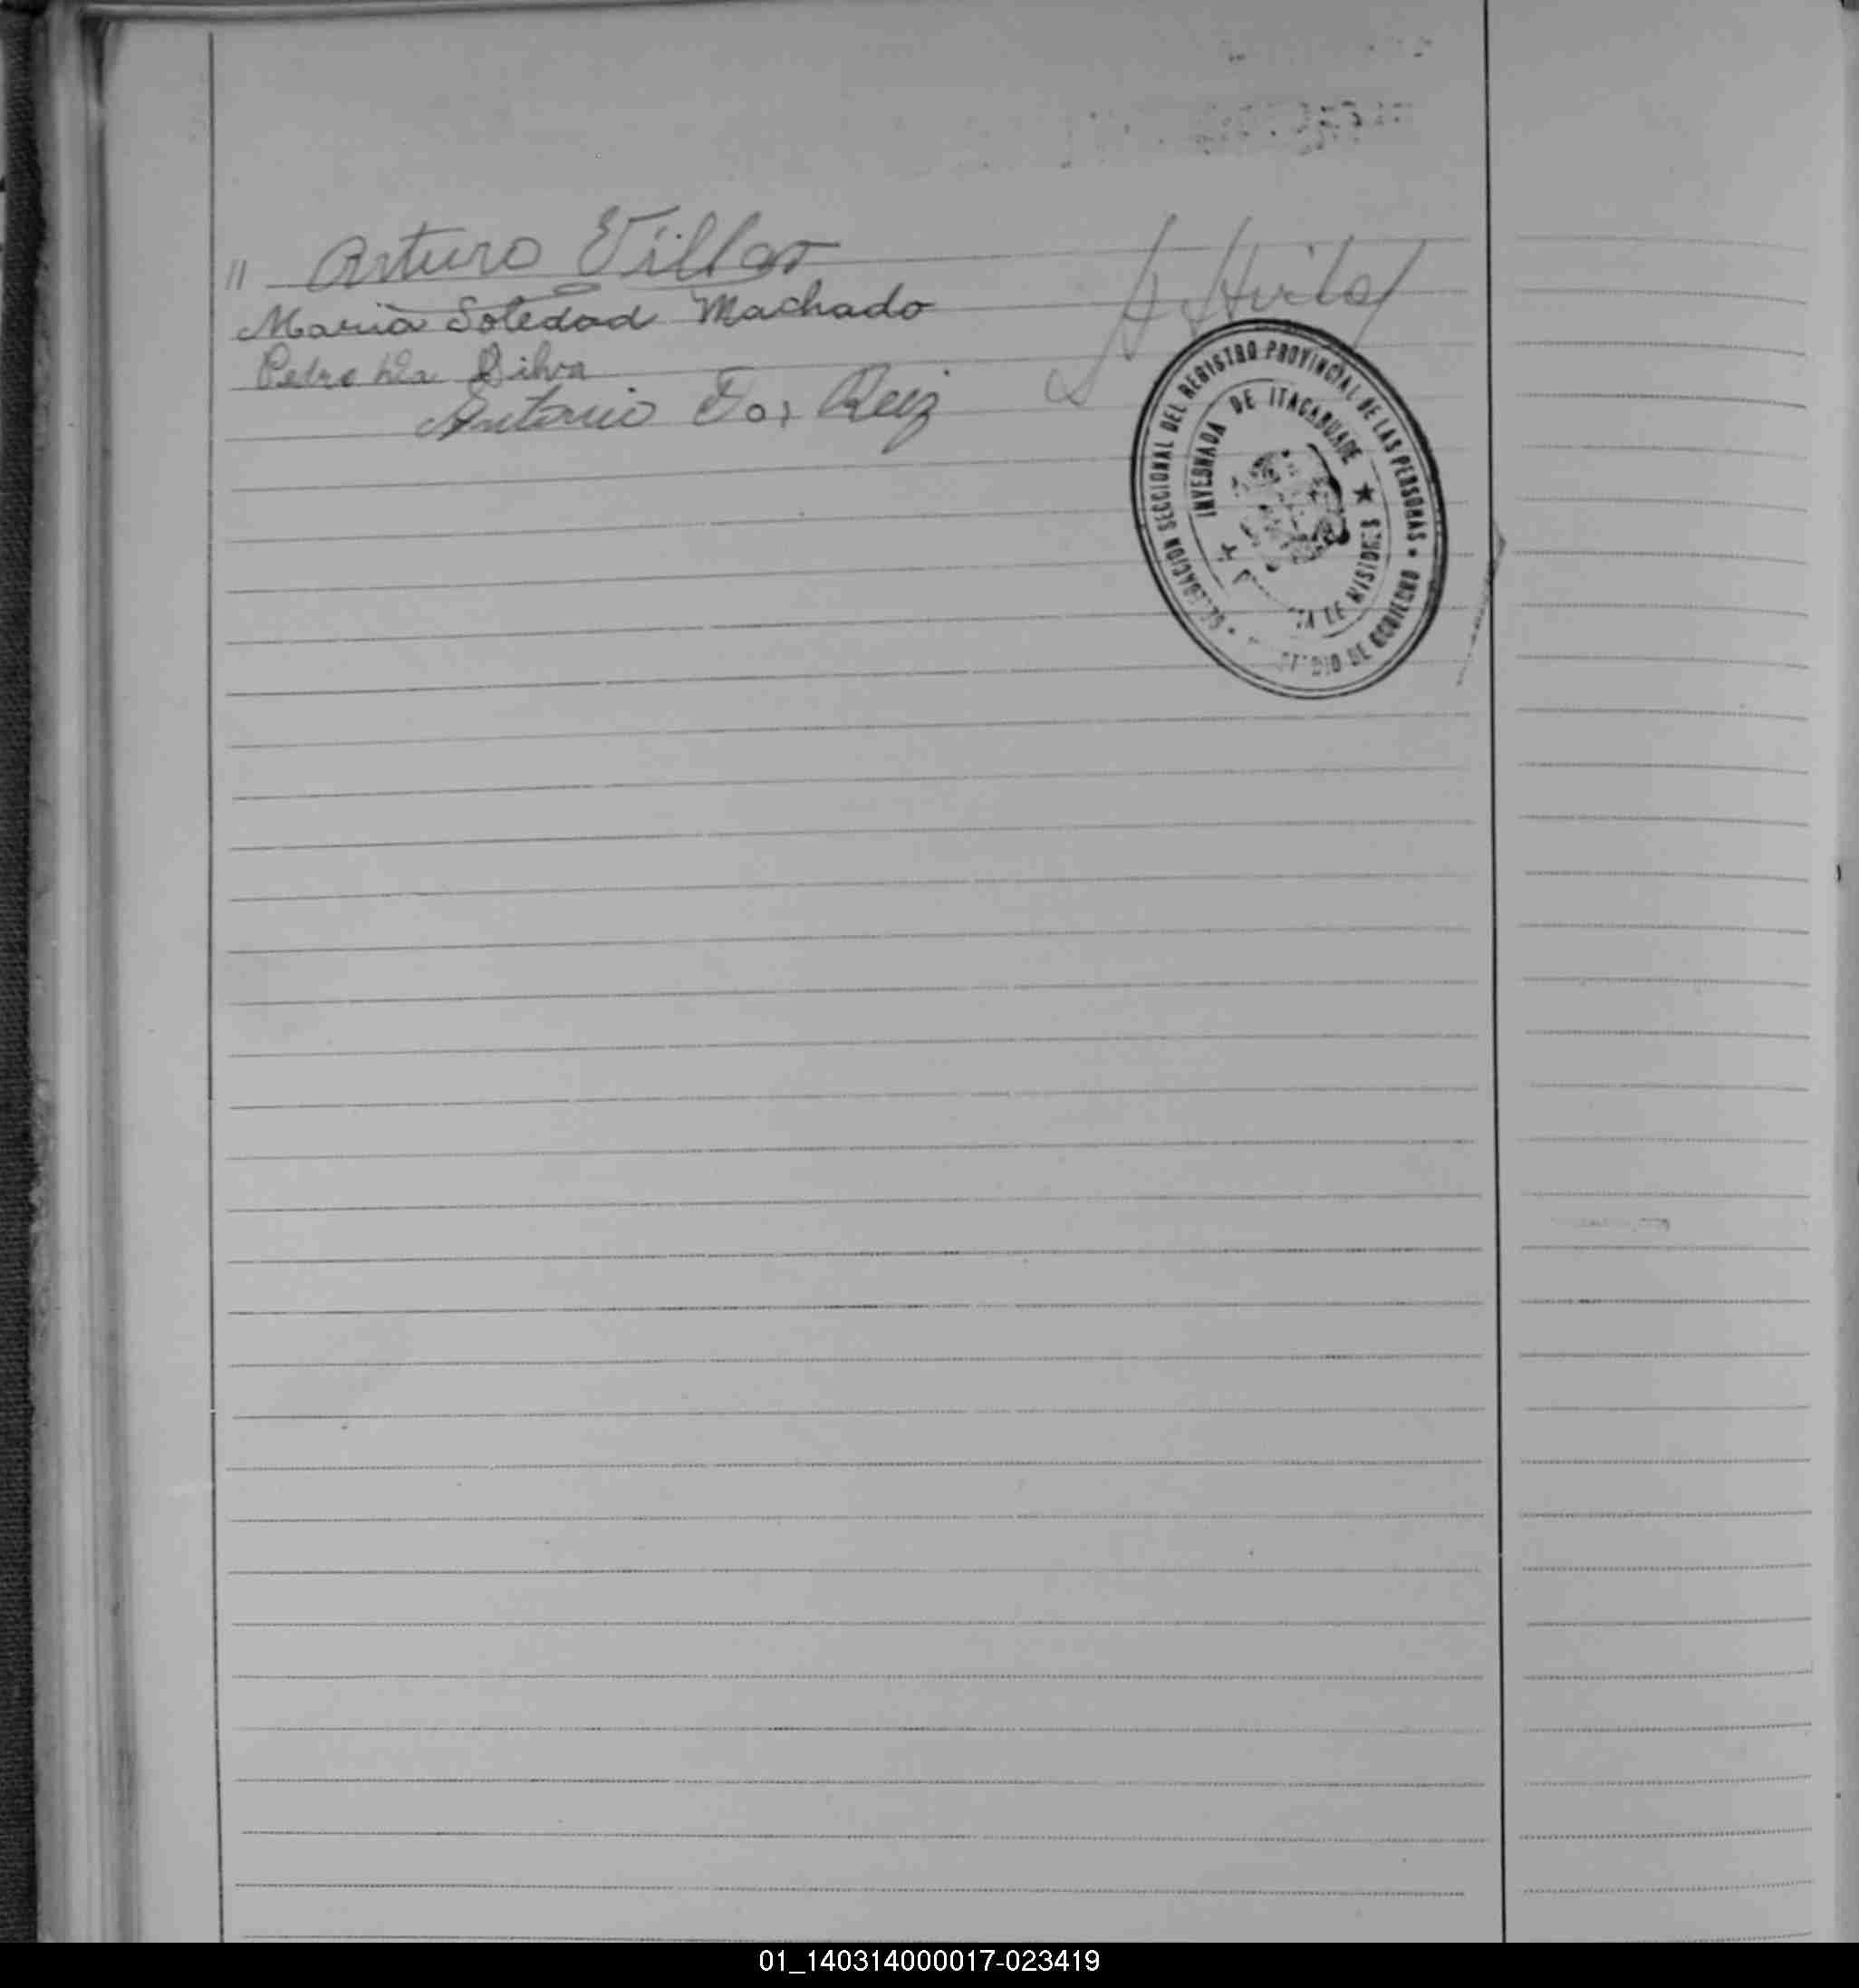 // Arturo Villar
A Avila
Maria Soledad Machado
Pedro Da Silva
Antonio Dos Reiz
DELEGACION SECCIONAL DEL REGISTRO PROVINCIAL DE LAS PERSONAS • DE GOBIERNO •
INVERNADA DE ITACARUARE ★ DE MISIONES ★
01_140314000017-023419